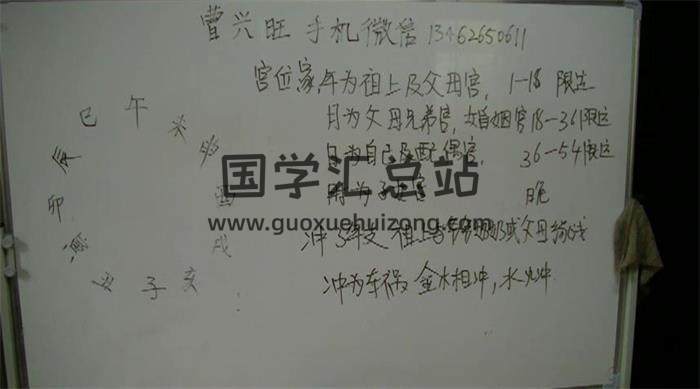 曹兴旺 手机微信 13462650611
宫位象,年为祖上及父母宫, 1-18 限运
月为父母兄弟宫,婚姻宫18-36限运
日为自己及配偶宫, 36-54限运
时为子女宫 晚
冲 年支 祖上 或父母
冲为车祸 金木相冲,水火冲
巳 午 未
辰 酉
卯 戌
丑 子 亥
国学汇总站
www.guoxuehuizong.com